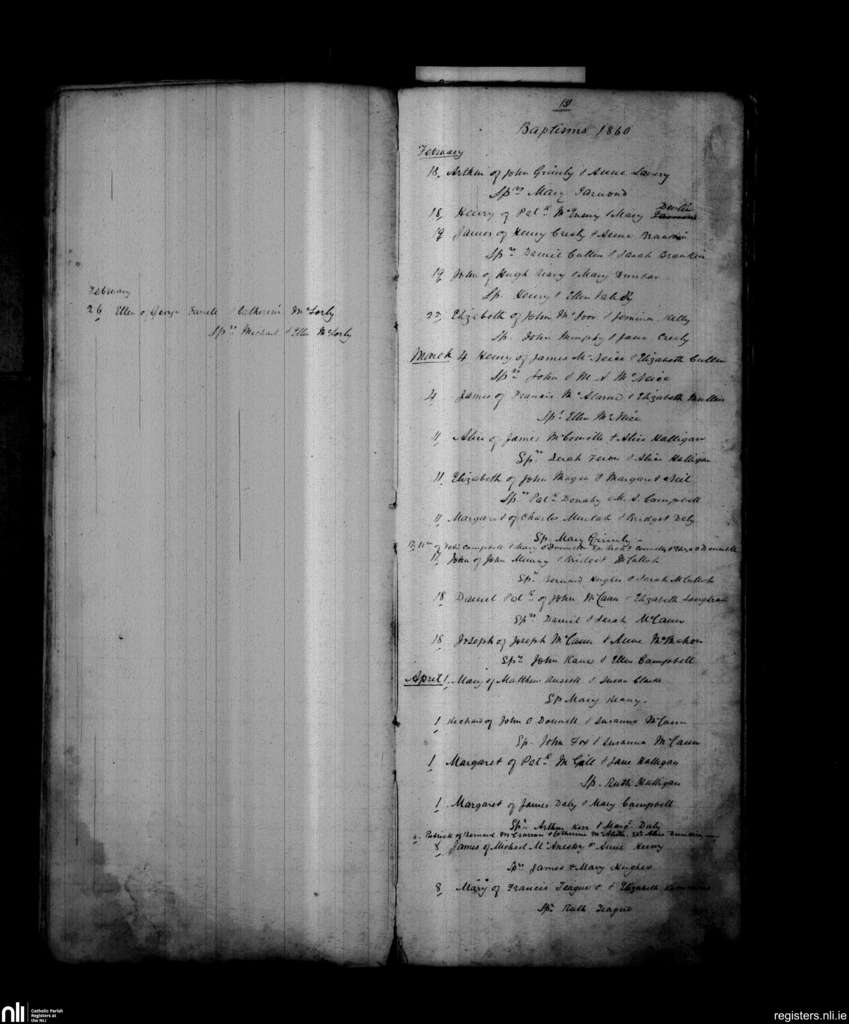 February
26 Ellen of George Catherine McSorly
Sprs Michael & Ellen McSorly
131
Baptisms 1860
February
18, Arthur of John Grimly & Anne Lavery
Sprs Mary
18, Henry of Patk McEnery & Mary Devlin
19 James of Henry Cresly & Anne
Sprs Daniel Cullen & Sarah
19 John of Hugh Neary & Mary
Sp. Henry & Ellen
22, Elizabeth of John McIvor & Jemima Kelly
Sp. John Murphy & Jane Cresly
March 4 Henry of James McNeice & Elizabeth Cullen
Sprs John & M. A McNeice
4 James of Francis & Elizabeth Mullen
Spr Ellen McNeice
11 Alice of James McConville & Alice Halligan
Sprs Sarah & Alice Halligan
11 Elizabeth of John Magee & Margaret Neil
Sprs Patk Donahy & M. A. Campbell
11 Margaret of Charles & Bridget Daly
Sp. Mary Grimly
of Campbell & Mary
17 John of John Murray & Bridget McCulloh
Sprs Bernard Hughes & Sarah McCulloh
18 Daniel Patk of John McCann & Elizabeth
Sprs Daniel & Sarah McCann
18 Joseph of Joseph McCann & Anne McMahon
Sprs John Kane & Ellen Campbell
April 1, Mary of Matthew Russell & Susan Clarke
Sp Mary Heany.
1 Richard of John O Donnell & Susanna McCann
Sp. John Fox & Susanna McCann
1 Margaret of Patk McGill & Jane Halligan
Sp. Ruth Halligan
1 Margaret of James Daly & Mary Campbell
Sprs Arthur Kerr & Margt Daly
Patrick of Bernard & Catherine
8 James of Michael McAnespy & Anne Heany
Sprs James & Mary Hughes
8 Mary of Francis Teague & Elizabeth
Sp. Ruth Teague
nli
Catholic Parish
Registers at
the NLI
registers.nli.ie